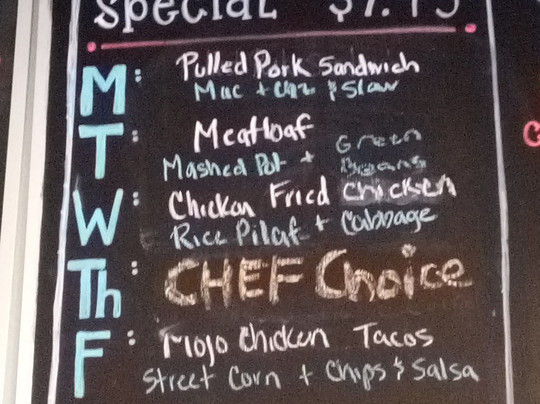 Special $7.95
M: Pulled Pork Sandwich
Mac + Chz & Slaw
T: Meatloaf
Mashed Pot + Green Beans
W: Chicken Fried Chicken
Rice Pilaf + Cabbage
Th: CHEF Choice
F: Mojo Chicken Tacos
Street Corn + Chips & Salsa